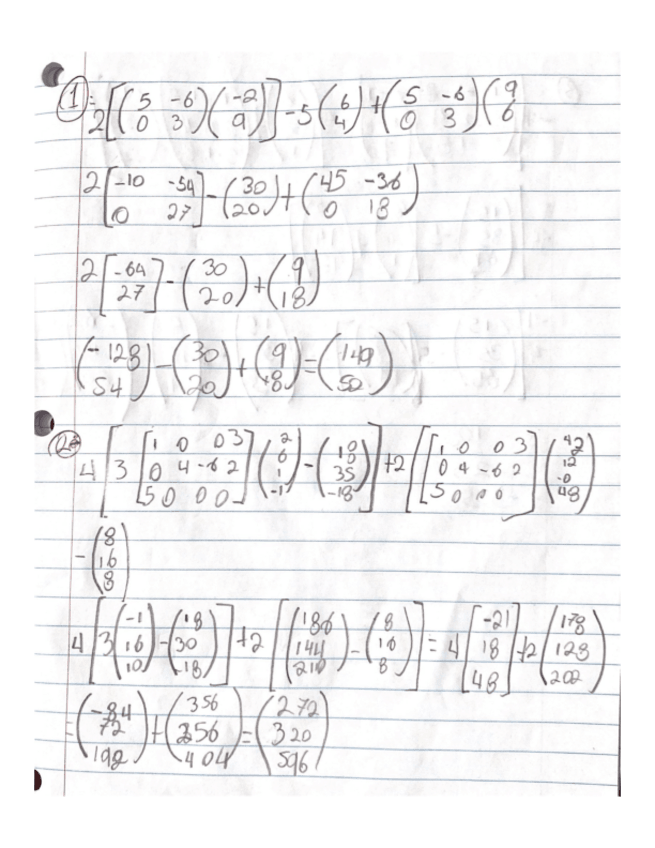 1 = 2[(5 -6 0 3)(-2 9)] - 5(6 4) + (5 -6 0 3)(9 6
2[-10 -54 0 27] - (30 20) + (45 -36 0 18)
2[-64 27] - (30 20) + (9 18)
(-128 54) - (30 20) + (9 18) = (149 52)
4[3[1 0 0 3 0 4 -6 2 5 0 0 0](2 6 1 -1) - (18 35 -18)] + 2[[1 0 0 3 0 4 -6 2 5 0 0 0](42 12 -0 48)
- (8 16 8)
4[3(-1 16 10) - (18 30 -18)] + 2[(186 144 210) - (8 16 8)] = 4[-21 18 48] + 2(178 128 202)
= (-84 72 192) + (356 256 404) = (272 320 596)